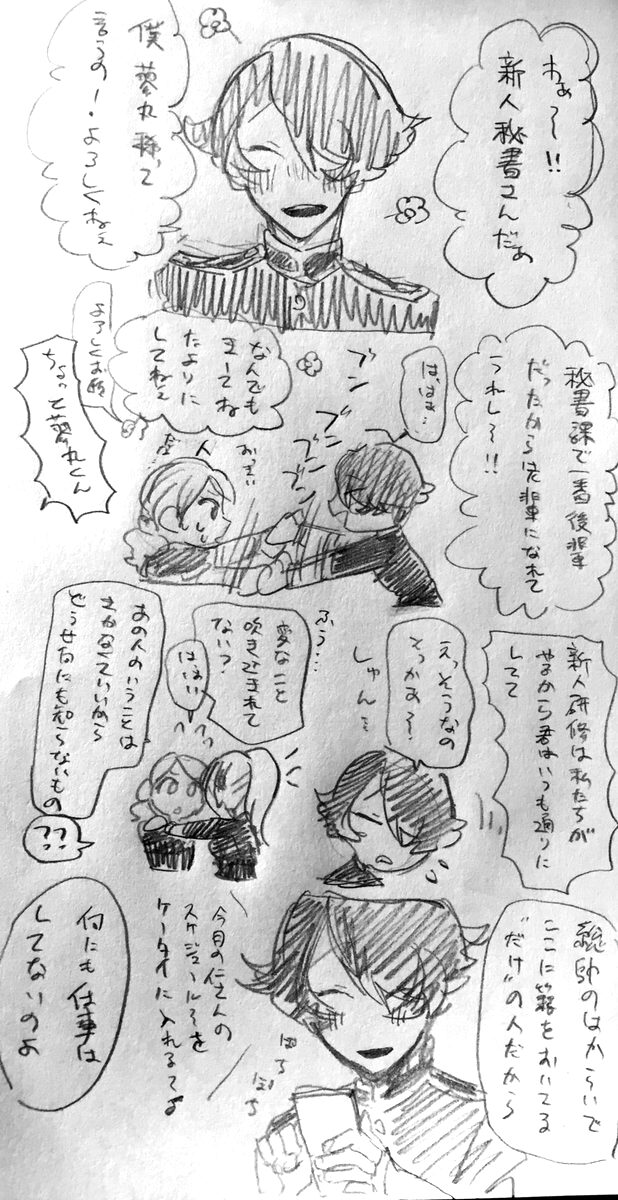 わぁ〜!!
新人秘書さんだぁ
僕 蓼丸 称って
言うの!よろしくねぇ
秘書課で一番後輩
だったから先輩になれて
うれし〜!!
は、はぁ…
ブン
ブン
ブン
ブン
なんでも
きーてね
たよりに
してねぇ
おっきい
人
だ…
よろしくお願
ちょっと蓼丸くん
新人研修は私たちが
やるから君はいつも通りに
してて
えっそうなの
そっかぁ〜
しゅん…
ふぅ…
変なこと
吹き込まれて
ない?
はいい
あの人のいうことは
きかなくていいから
どうせなにも知らないもの
??
総帥のはからいで
ここに籍をおいてる
"だけ"の人だから
今月の仁さんの
スケジュールを
ケータイに入れるてよ
ぽち
ぽち
何にも仕事は
してないのよ